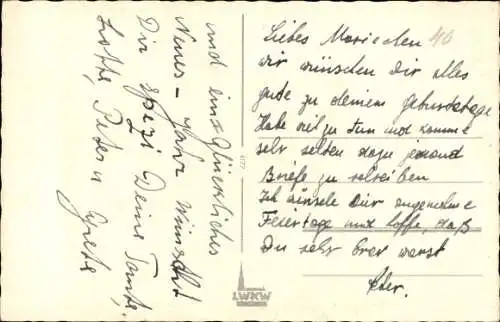 Liebes Mariechen 40
wir wünschen Dir alles
gute zu deinem Geburtstage
Habe viel zu tun und komme
sehr selten dazu jemand
Briefe zu schreiben
Ich wünsche Dir angenehme
Feiertage und hoffe, daß
Du sehr brav warst
Peter.
und ein Glückliches
Neues-Jahr wünscht
Dir Deine Tante,
Lotte, Peter u
Grete
4177
LWKW